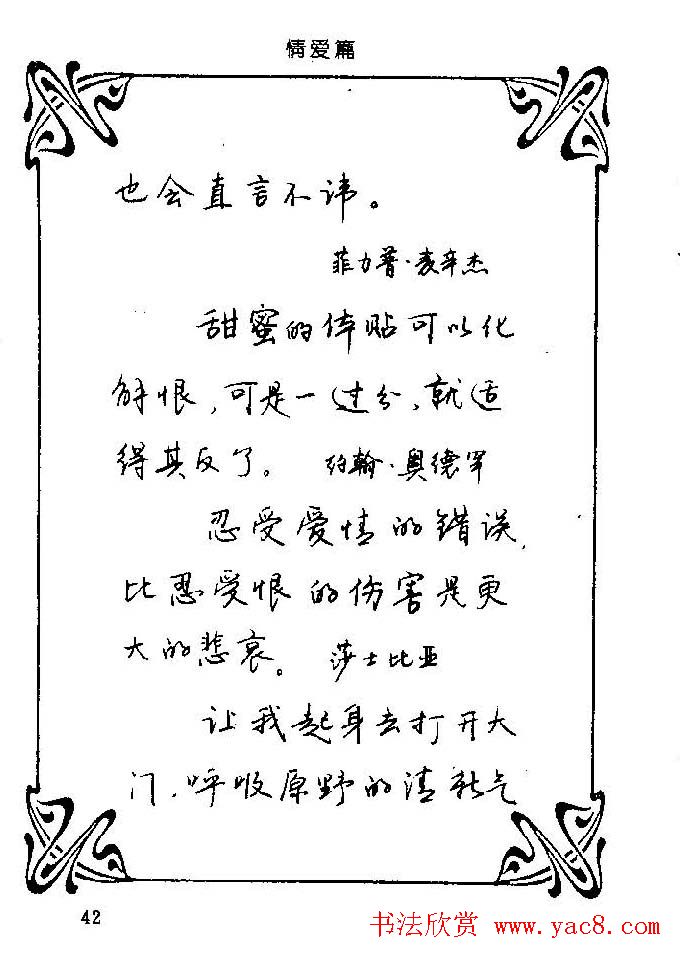 情爱篇
也会直言不讳。
菲力普·麦辛杰
甜蜜的体贴可以化
解恨,可是一过分,就适
得其反了。 约翰·奥德罕
忍受爱情的错误,
比忍受恨的伤害是更
大的悲哀。 莎士比亚
让我起身去打开大
门,呼吸原野的清新气
42
书法欣赏 www.yac8.com